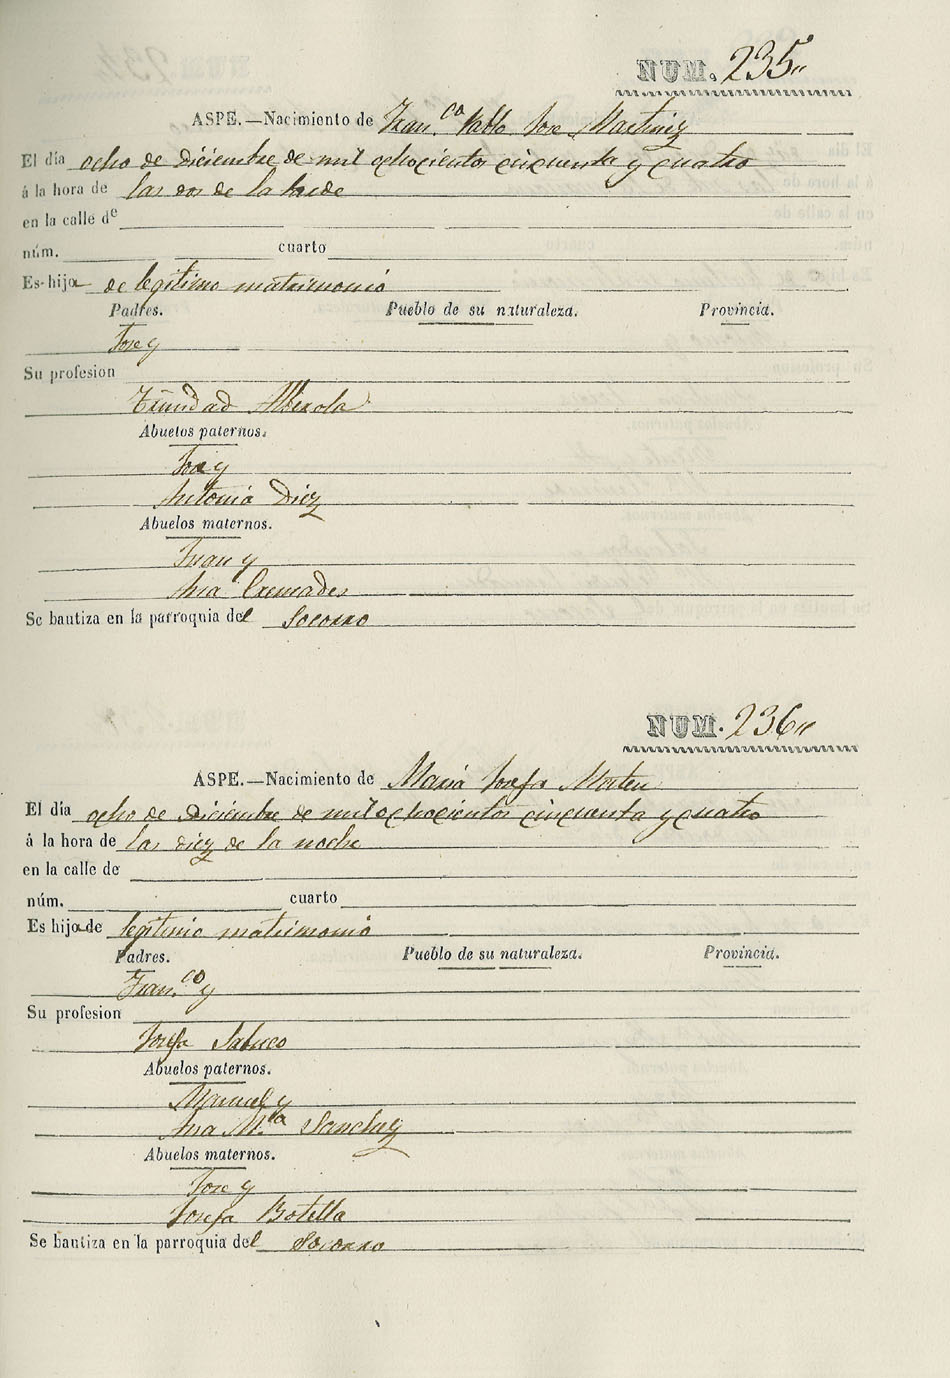 NUM. 235"
ASPE.—Nacimiento de Fran.ca Pablo Jose Martinez
El día ocho de diciembre de mil ochocientos cincuenta y cuatro
á la hora de las dos de la tarde
en la calle de
núm. cuarto
Es hija de legitimo matrimonio
Padres. Pueblo de su naturaleza. Provincia.
Jose y
Su profesion
Trinidad Alberola
Abuelos paternos.
Jose y
Antonia Diez
Abuelos maternos.
Juan y
Ana Cremades
Se bautiza en la parroquia del Socorro
NUM. 236"
ASPE.—Nacimiento de Maria Josefa
El día ocho de Diciembre de mil ochocientos cincuenta y cuatro
á la hora de las diez de la noche
en la calle de
núm. cuarto
Es hija de legitimo matrimonio
Padres. Pueblo de su naturaleza. Provincia.
Fran.co y
Su profesion
Josefa Sabuco
Abuelos paternos.
Manuel y
Ana M.ia Sanchez
Abuelos maternos.
Jose y
Josefa Botella
Se bautiza en la parroquia del Socorro